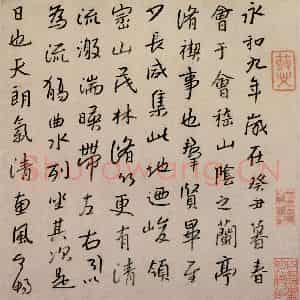 永和九年歲在癸丑暮春
會于會稽山陰之蘭亭
脩禊事也群賢畢至
少長咸集此地迺峻領
崇山茂林脩竹更有清
流激湍暎帶左右引以
為流觴曲水列坐其次是
日也天朗氣清惠風和暢
Shufawang.CN